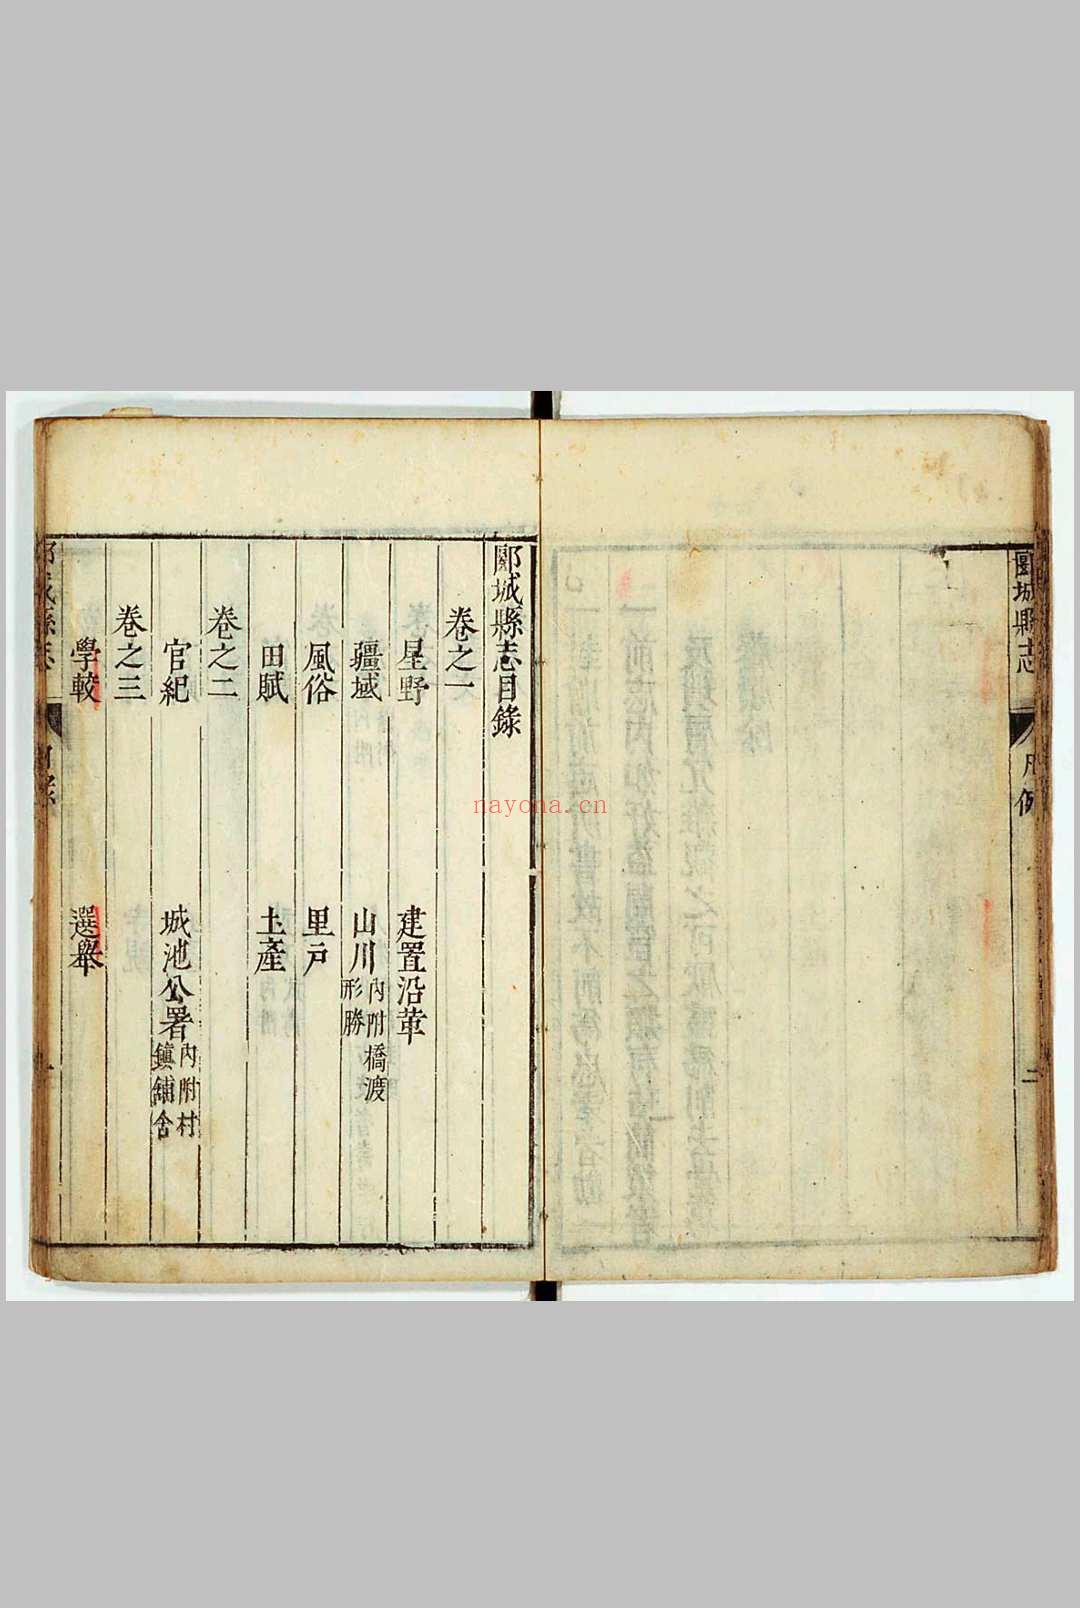 郾城縣志
凡例
二
郾城縣志目錄
卷之一
星野 建置沿革
疆域 山川內附橋渡形勝
風俗 里戶
田賦 土產
卷之二
官紀 城池公署內附村鎮鋪舍
卷之三
學較 選舉
nayona.cn